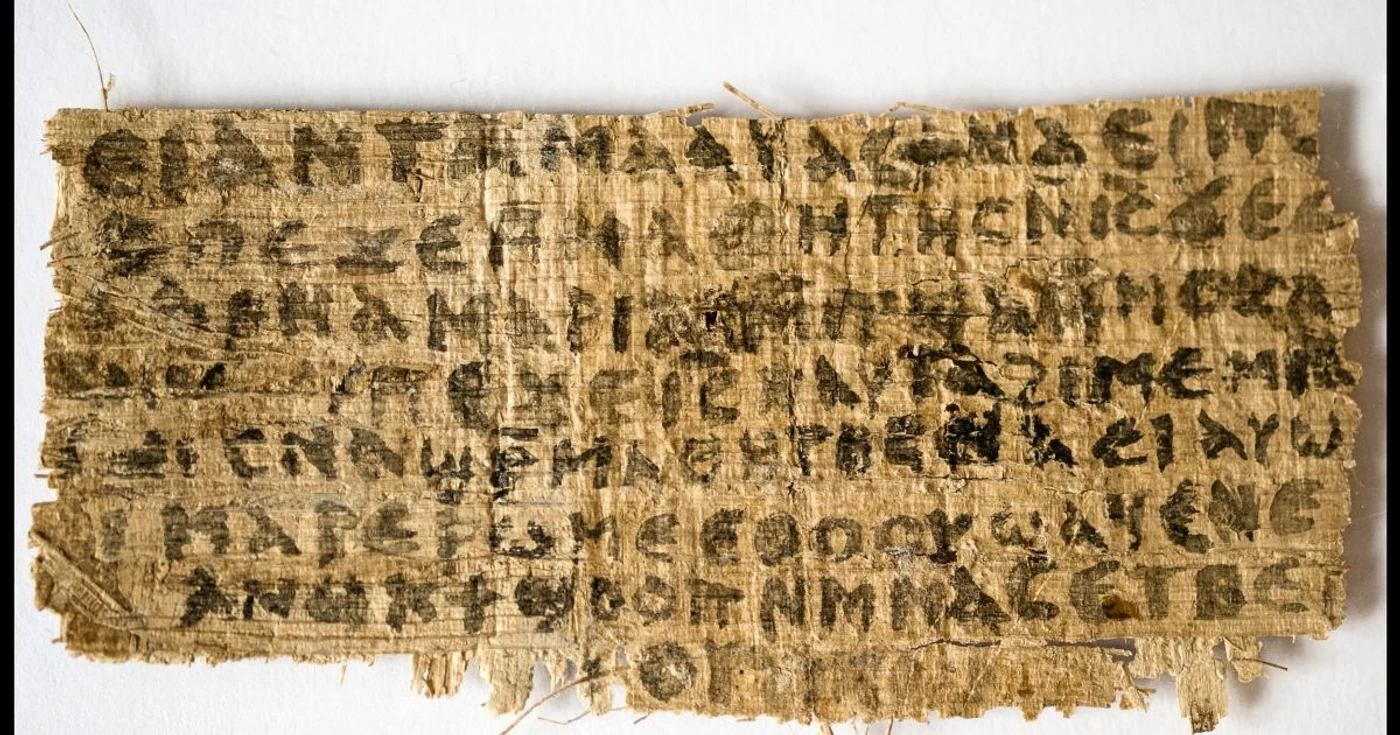 ⲉⲓ ⲁⲛ ⲧⲁⲙⲁⲁⲩ ⲁⲥϯ ⲛⲁⲉⲓ ⲡⲱ
ⲡⲉϫⲉ ⲙ̄ⲙⲁⲑⲏⲧⲏⲥ ⲛ̄ⲓ̅ⲥ̅ ϫⲉ ⲥ
ⲁⲣⲛⲁ ⲙⲁⲣⲓⲁⲙ ⲙ̄ⲡϣⲁ ⲙ̄ⲙⲟⲥ ⲁ
ⲡⲉϫⲉ ⲓ̅ⲥ̅ ⲛⲁⲩ ⲧⲁϩⲓⲙⲉ ⲙⲛ̄
ⲥⲛⲁϣⲣ̄ⲙⲁⲑⲏⲧⲏⲥ ⲛⲁⲉⲓ ⲁⲩⲱ
ⲙⲁⲣⲉⲣⲱⲙⲉ ⲉⲑⲟⲟⲩ ϣⲁϥⲉ ⲛⲉ
ⲁⲛⲟⲕ ϯϣⲟⲟⲡ ⲛⲙ̄ⲙⲁⲥ ⲉⲧⲃⲉ ⲡ